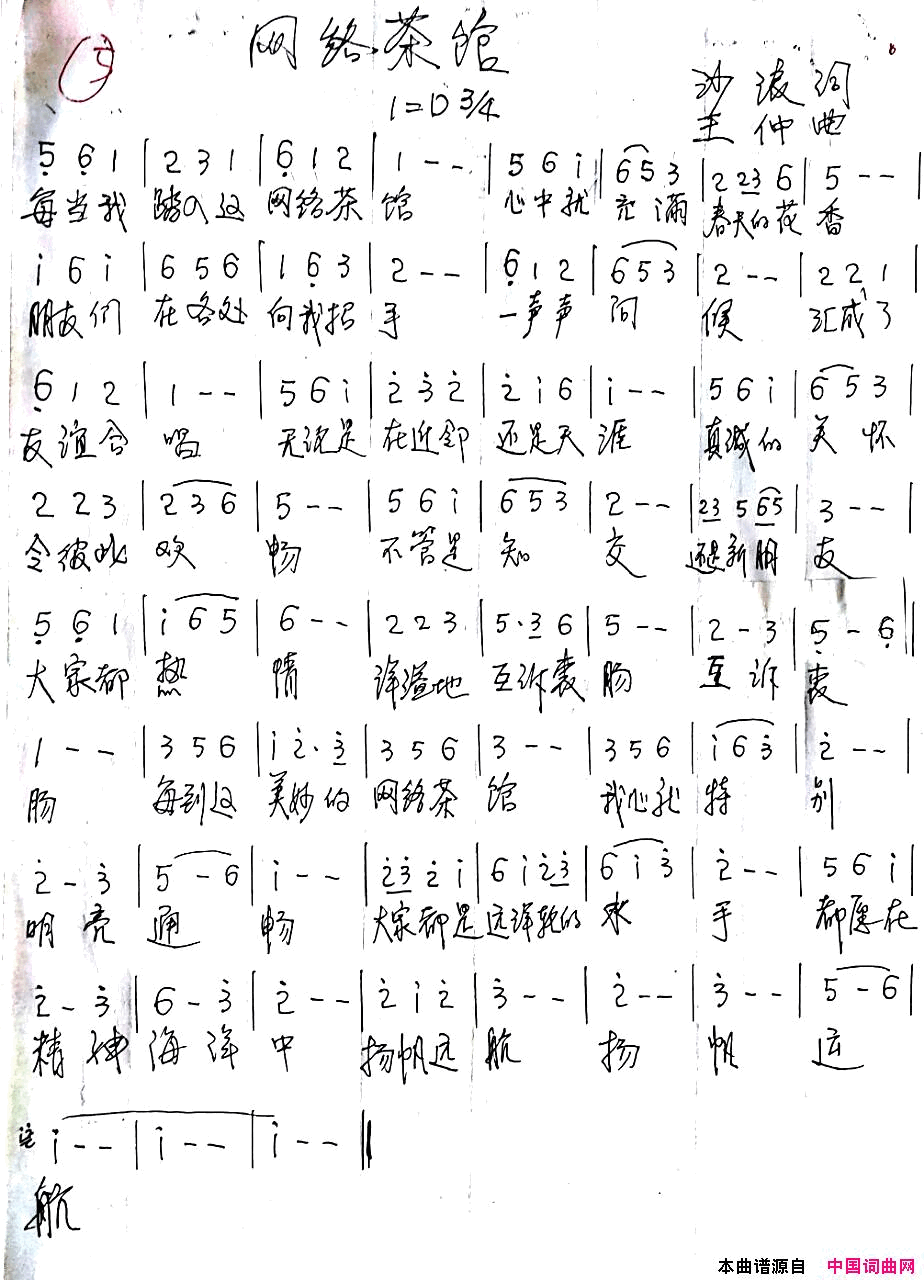 5
网络茶馆
1=D 3/4
沙波词
王仲曲
5̣ 6̣ 1 | 2 3 1 | 6̣ 1 2 | 1 - - | 5 6 i | 6 5 3 | 2 2 3 6 | 5 - - |
每当我 踏入这 网络茶 馆 心中就 充满 春天的花 香
i 6 i | 6 5 6 | 1 6̣ 3 | 2 - - | 6̣ 1 2 | 6 5 3 | 2 - - | 2 2 1 |
朋友们 在各处 向我招 手 一声声 问 候 汇成了
6̣ 1 2 | 1 - - | 5 6 i | 2̇ 3̇ 2̇ | 2̇ i 6 | i - - | 5 6 i | 6 5 3 |
友谊合 唱 无论是 在近邻 还是天 涯 真诚的 关怀
2 2 3 | 2 3 6 | 5 - - | 5 6 i | 6 5 3 | 2 - - | 2 3 5 6 5 | 3 - - |
令彼此 欢 畅 不管是 知 交 还是新朋 友
5̣ 6̣ 1 | i 6 5 | 6 - - | 2 2 3 | 5 · 3 6 | 5 - - | 2 - 3 | 5̣ - 6̣ ||
大家都 热 情 洋溢地 互诉衷 肠 互诉 衷
1 - - | 3 5 6 | i 2̇ · 3̇ | 3 5 6 | 3 - - | 3 5 6 | i 6 3̇ | 2̇ - - |
肠 每到这 美妙的 网络茶 馆 我心就 特 别
2̇ - 3̇ | 5 - 6 | i - - | 2̇ 3̇ 2̇ i | 6 i 2̇ 3̇ | 6 i 3̇ | 2̇ - - | 5 6 i |
明亮 通 畅 大家都是 远洋航的 水 手 都愿在
2̇ - 3̇ | 6 - 3̇ | 2̇ - - | 2̇ i 2̇ | 3̇ - - | 2̇ - - | 3̇ - - | 5 - 6 |
精神 海洋 中 扬帆远 航 扬 帆 远
i - - | i - - | i - - ||
航
本曲谱源自 中国词曲网